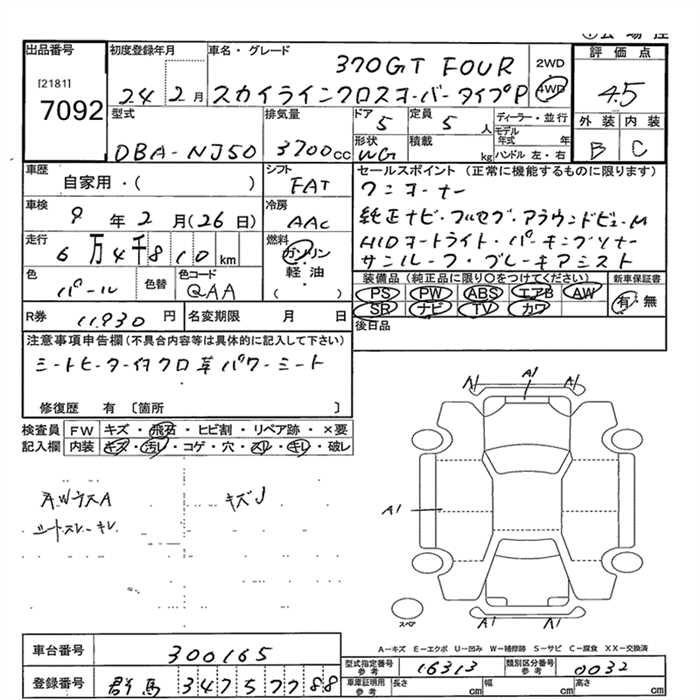 出品番号 [2181] 7092
初度登録年月 24 2月
車名・グレード 370GT FOUR
スカイラインクロスオーバー タイプP
2WD
4WD
評価点 4.5
外装 内装
B C
型式 DBA-NJ50
排気量 3700cc
ドア 5
定員 5人
形状 WG
積載 kg
ディーラー・並行
モデル年式 年
ハンドル 左・右
車歴 自家用・( )
シフト FAT
車検 9年2月(26日)
冷房 AAC
走行 6万4千810km
燃料 ガソリン
軽油
( )
色 パール
色替
色コード QAA
R券 11,930円
名変期限 月 日
セールスポイント (正常に機能するものに限ります)
ワンオーナー
純正ナビ・フルセグ・アラウンドビューM
HIDオートライト・パーキングソナー
サンルーフ・ブレーキアシスト
装備品 (純正品に限り○をつけてください)
PS PW ABS エアB AW
SR ナビ TV カワ
新車保証書
有・無
後日品
注意事項申告欄(不具合内容等は具体的に記入して下さい)
シートヒーター付クロ革パワーシート
修復歴 有 [箇所 ]
検査員 FW キズ・飛石・ヒビ割・リペア跡・×要
記入欄 内装 キズ・汚レ・コゲ・穴・スレ・キレ・破レ
AWウスA キズJ
シートスレ・キレ
A1 A1 A1
A1 A1
A1 A1
スペア
A－キズ E－エクボ U－凹み W－補修跡 S－サビ C－腐食 XX－交換済
車台番号 300165
登録番号 群馬 347 5 77 88
型式指定番号 参考 16313
類別区分番号 参考 0032
車庫証明用 参考 長さ cm 幅 cm 高さ cm